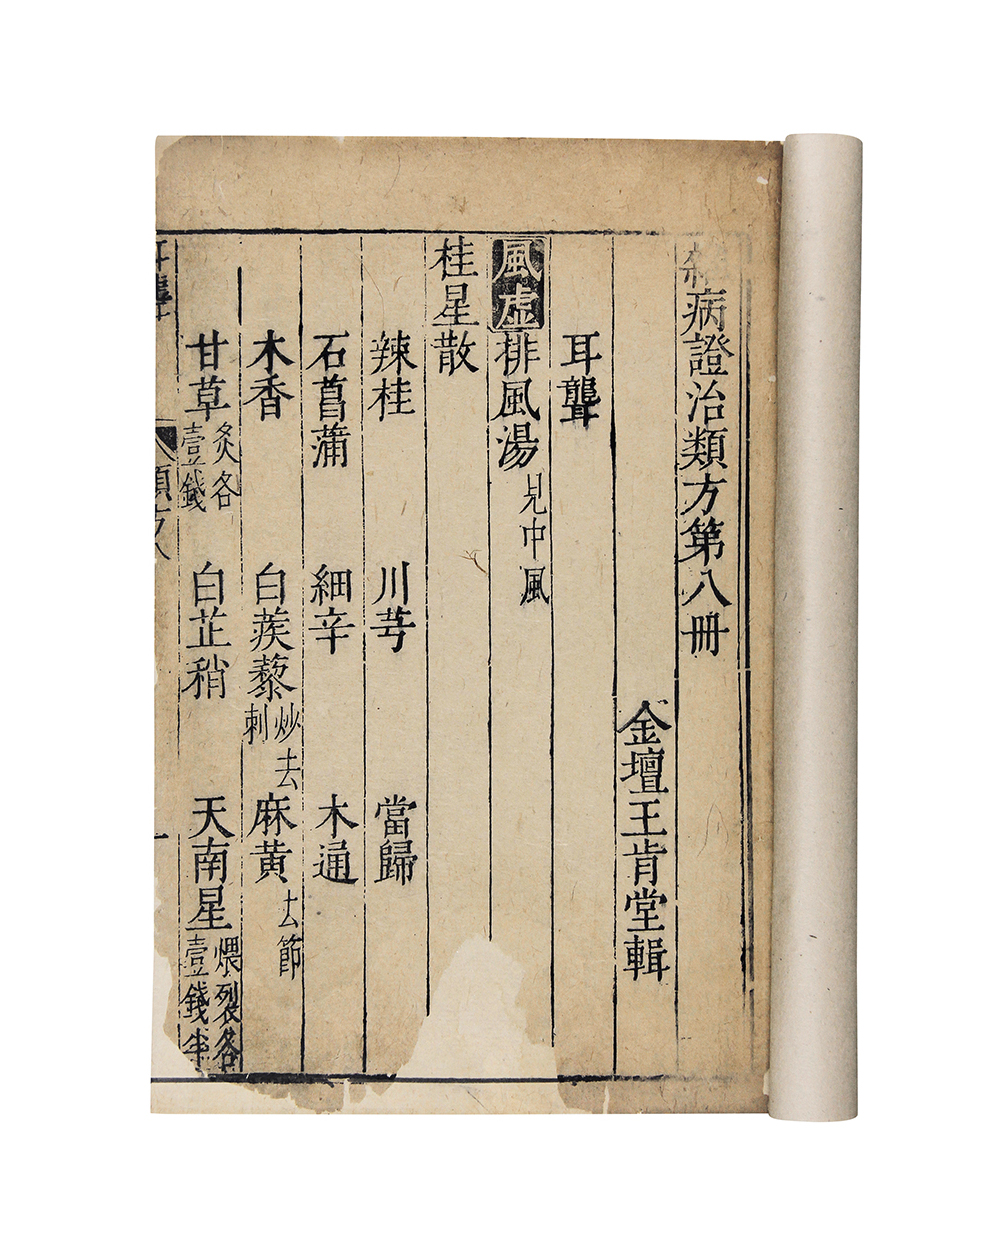 病證治類方第八冊
金壇王肯堂輯
耳聾
風虛 排風湯 見中風
桂星散
辣桂 川芎 當歸
石菖蒲 細辛 木通
木香 白蒺藜 炒去刺 麻黃 去節
甘草 炙各壹錢 白芷梢 天南星 煨裂各壹錢半
類方八